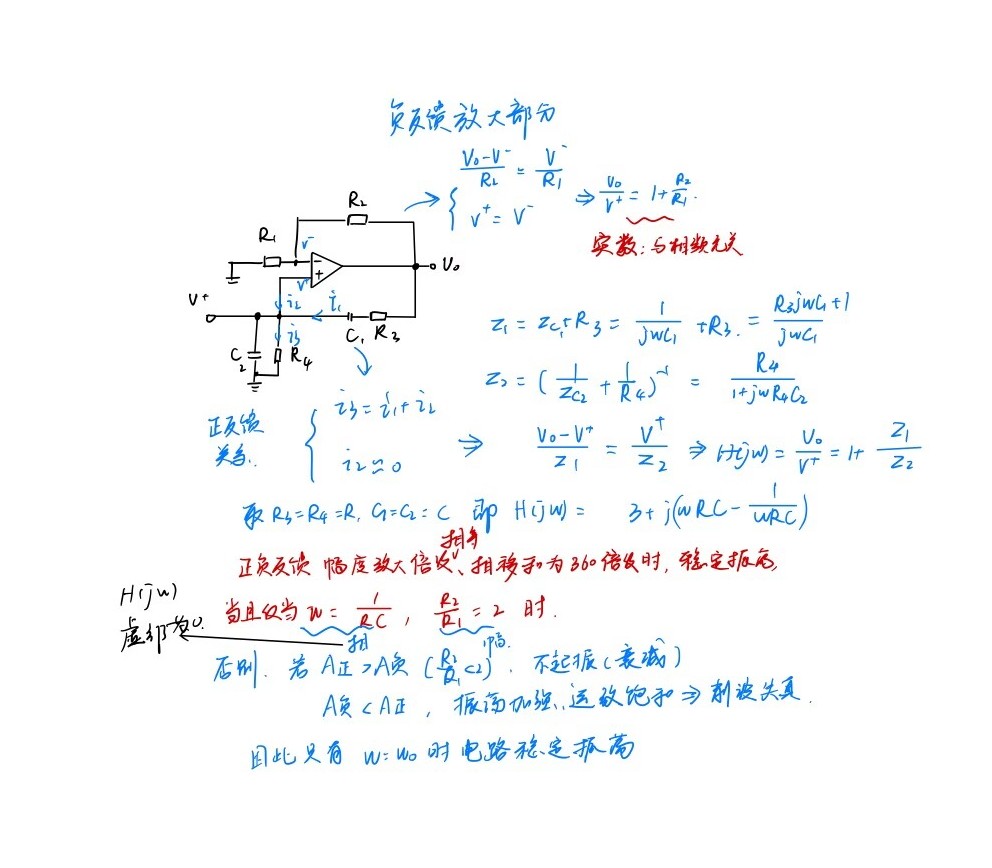 负反馈放大部分
(V₀-V⁻)/R₂ = V⁻/R₁
V⁺ = V⁻
⇒ V₀/V⁺ = 1+R₂/R₁.
实数: 与相频无关
R₂
R₁
V⁻
V⁺
V₀
V⁺
i₂
i₁
i₃
C₁ R₃
C₂
R₄
Z₁ = Zc₁+R₃ = 1/(jwC₁) +R₃. = (R₃jwC₁+1)/(jwC₁)
Z₂ = (1/Zc₂ + 1/R₄)⁻¹ = R₄/(1+jwR₄C₂)
正反馈
关系.
i₃ = i₁+i₂
i₂≈0
⇒ (V₀-V⁺)/Z₁ = V⁺/Z₂ ⇒ H(jw) = V₀/V⁺ = 1+ Z₁/Z₂
取 R₃=R₄=R, C₁=C₂=C 即 H(jw) = 3+j(wRC-1/(wRC))
相等
正负反馈 幅度放大倍数、相移和为360倍数时, 稳定振荡,
当且仅当 w = 1/(RC), R₂/R₁ = 2 时.
H(jw)
虚部为0.
相
幅.
否则. 若 A正>A负 (R₂/R₁<2). 不起振(衰减)
A负<A正, 振荡加强, 运放饱和⇒削波失真.
因此只有 w=w₀ 时电路稳定振荡